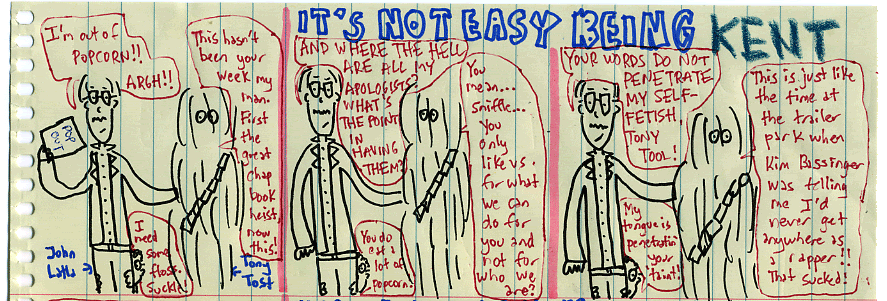 IT'S NOT EASY BEING KENT
I'm out of
POPCORN!!
ARGH!!
This hasn't
been your
week my
man.
First
the
great
chap
book
heist,
now
this!
POP
OUT
I
need
some
floss.
suckle!
John
Latta →
Tony
Tost
AND WHERE THE HELL
ARE ALL MY
APOLOGISTS?
WHAT'S
THE POINT
IN
HAVING
THEM?
You
mean...
sniffle...
You
only
like us
for what
we can
do for
you and
not for
who we
are?
You do
eat a
lot of
popcorn.
YOUR WORDS DO NOT
PENETRATE
MY SELF-
FETISH,
TONY
TOOL!
This is just like
the time at
the trailer
park when
Kim Bassinger
was telling
me I'd
never get
anywhere as
a rapper!!
That sucked!
My
tongue is
penetratin'
your
taint!